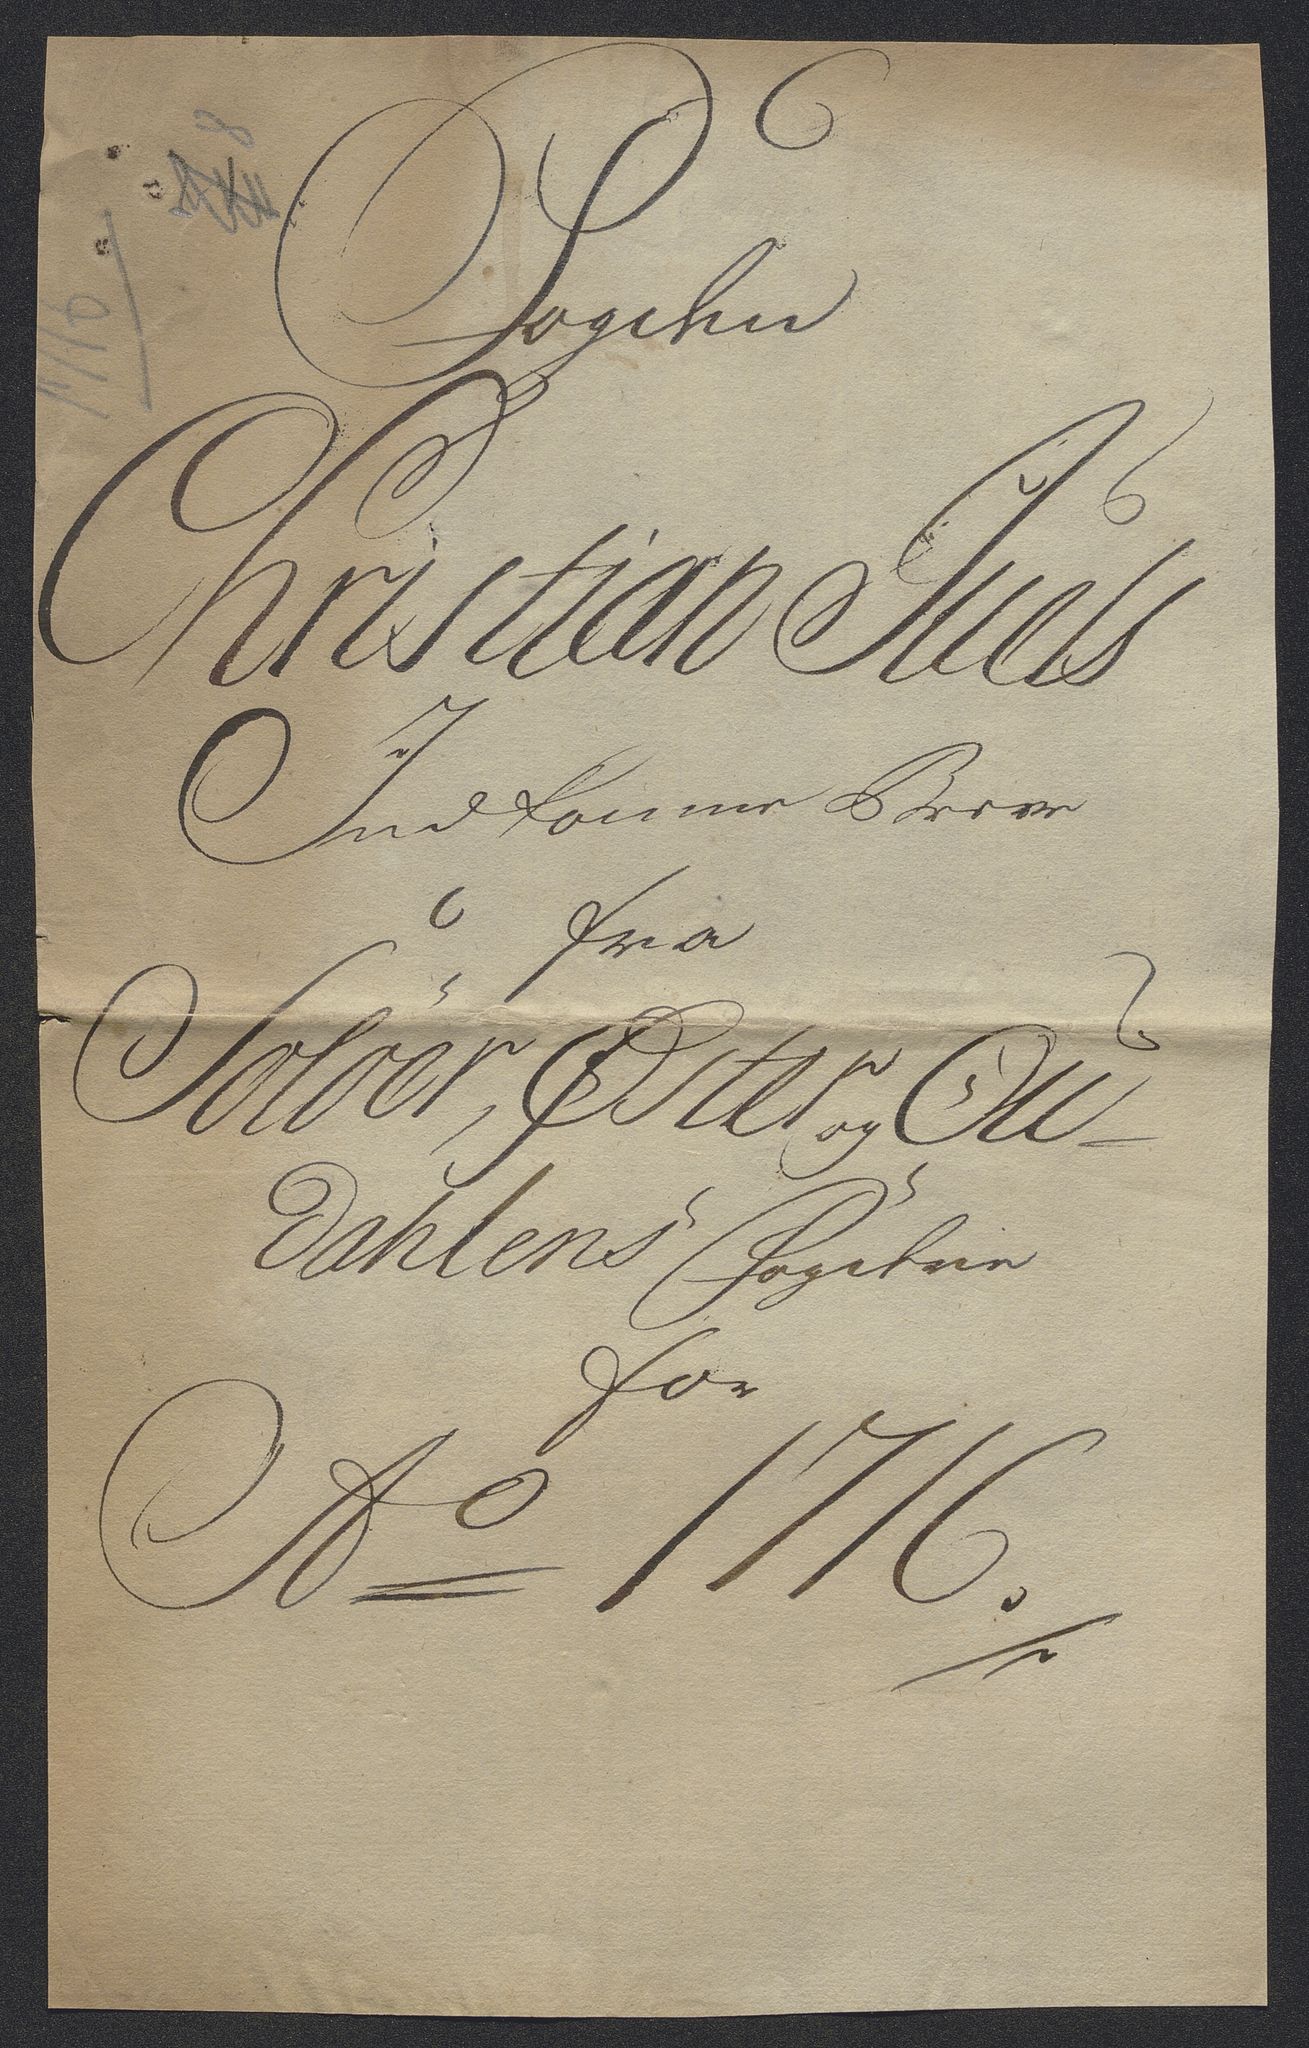 Fogden
Christian Juels
Indkomne Breve
fra
Soloer, Øster og Ou-
dahlens Fogderie
for
Ao 1716.